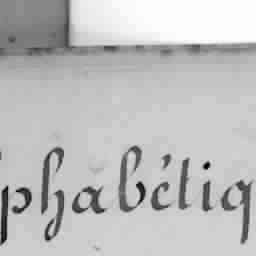 phabétiq